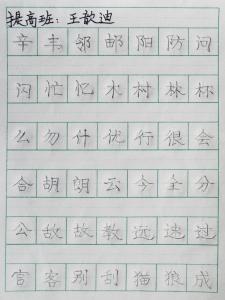 提高班：王歆迪
辛韦邻邮阳防问
闪忙忆木村林杯
么勿什优行很会
合胡朗云今全分
公故教远送过
官客别刮猫狼成